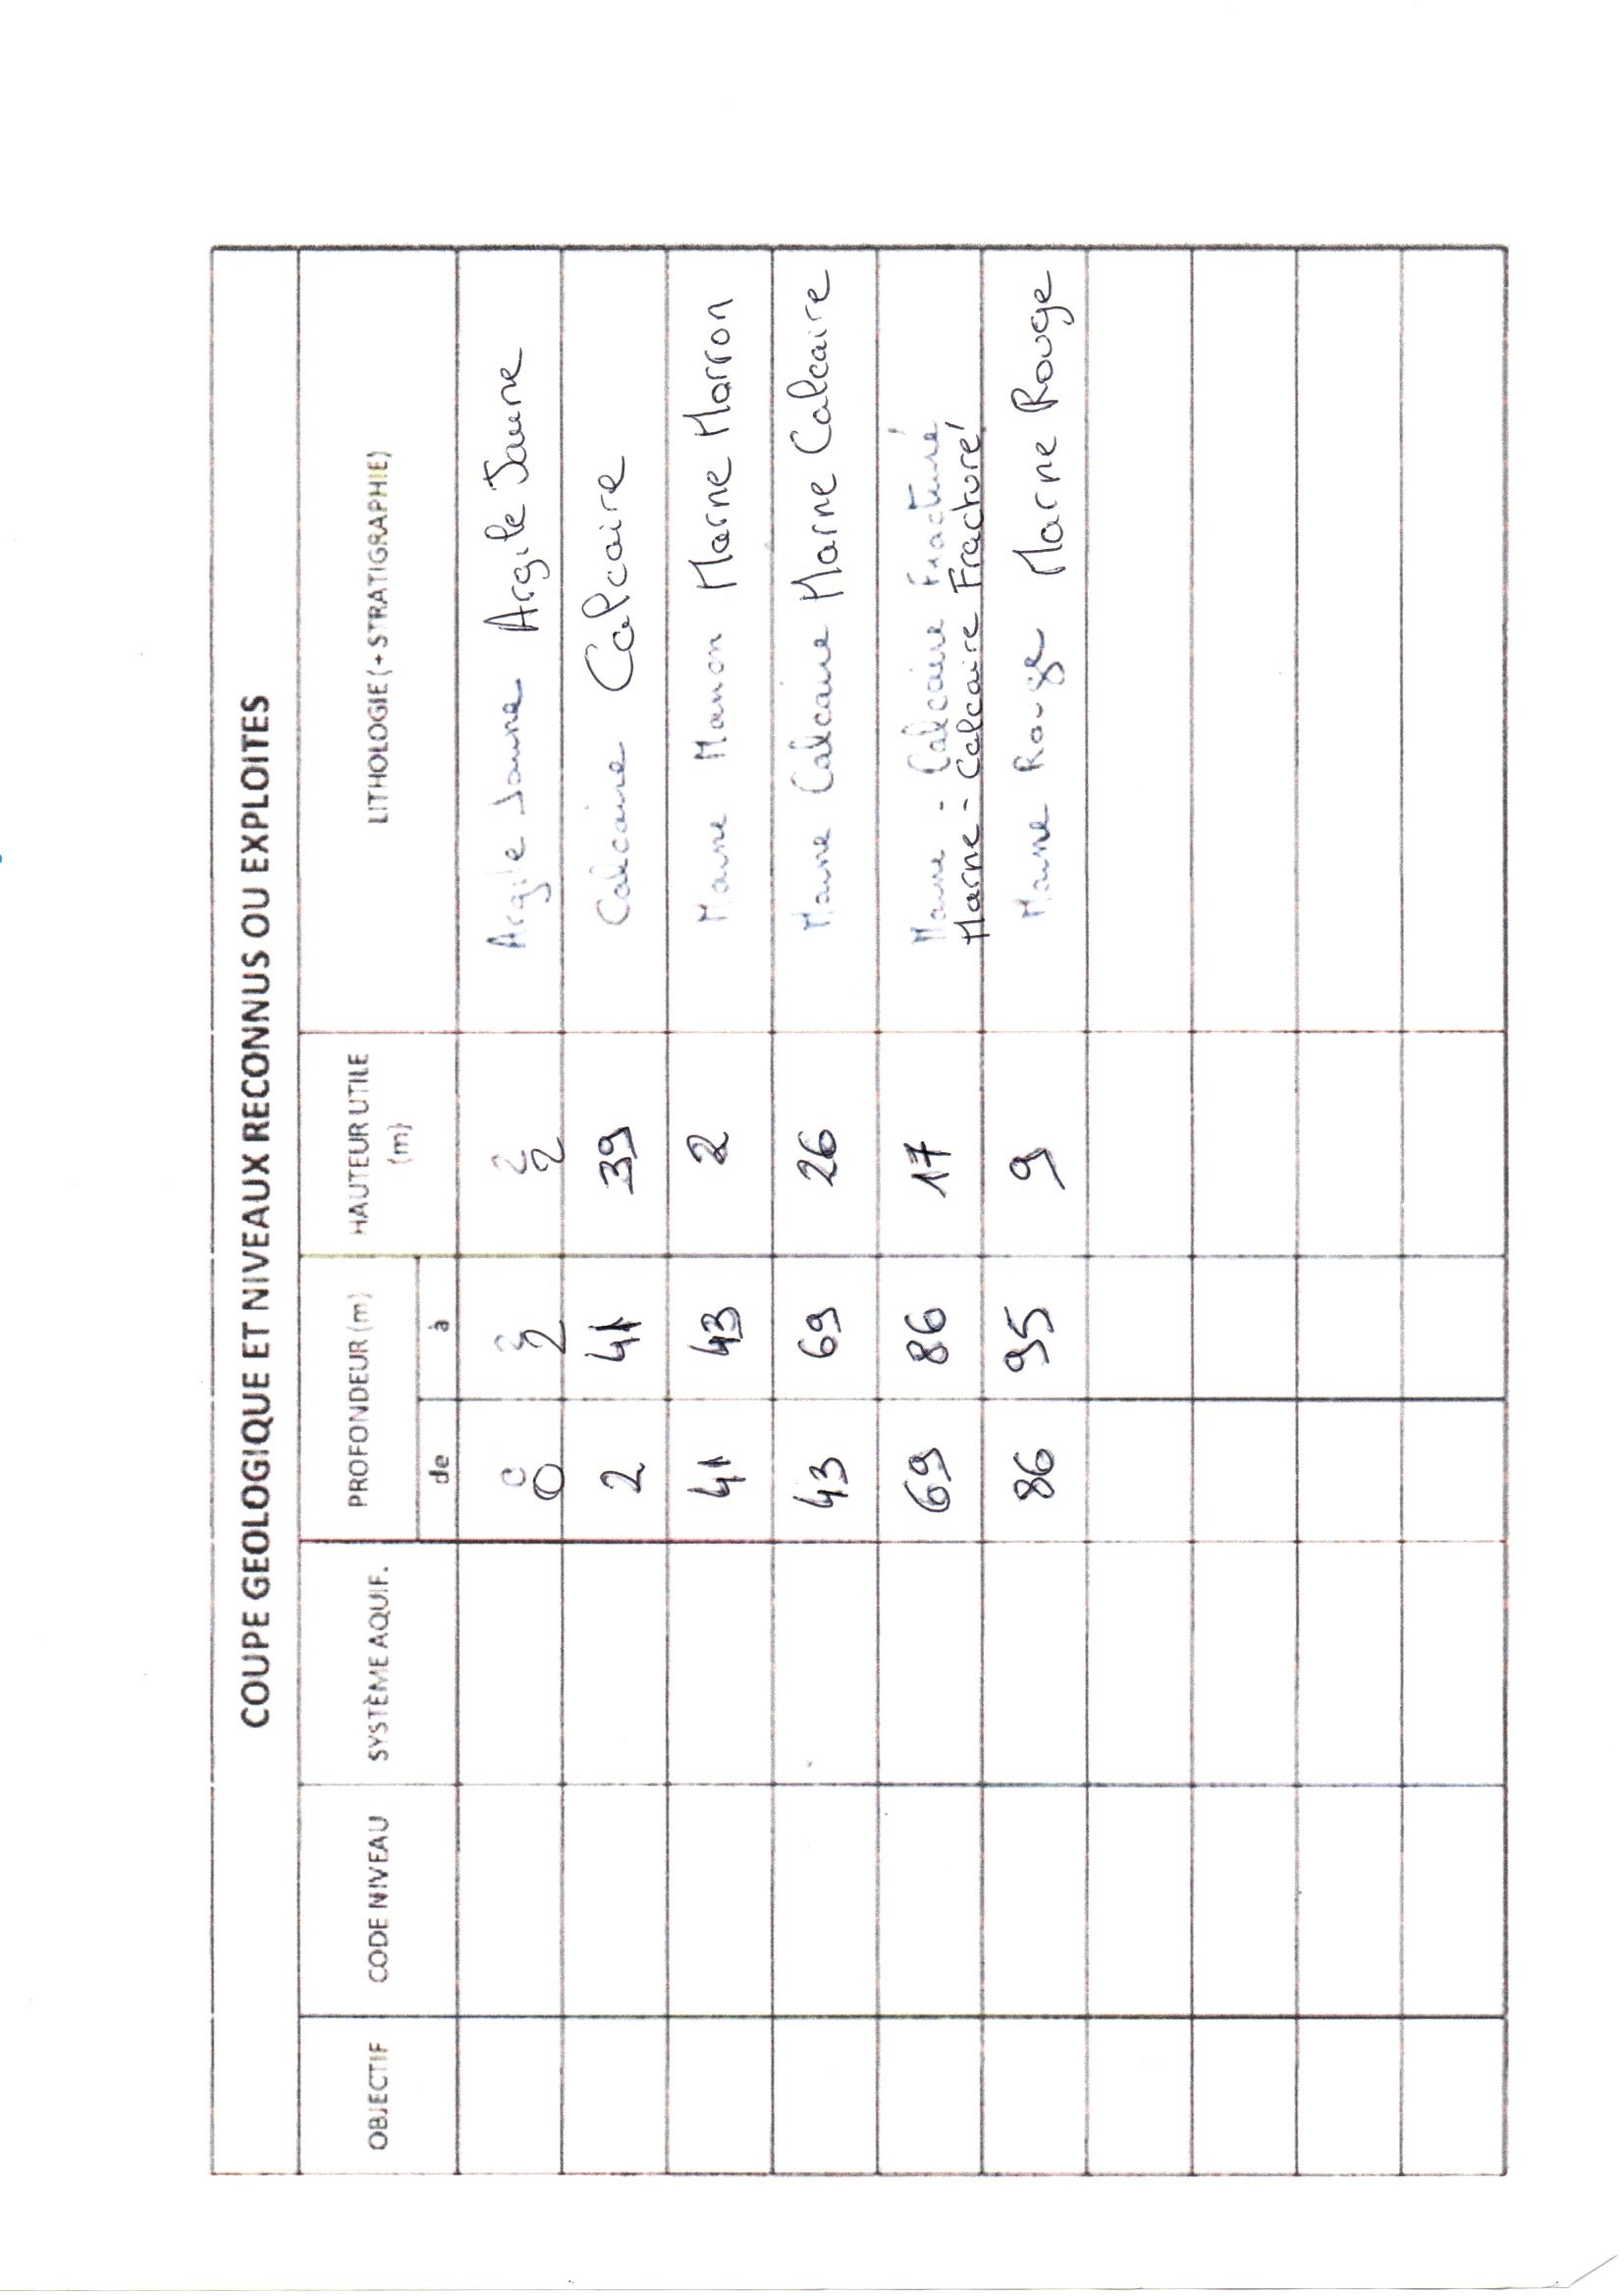 COUPE GEOLOGIQUE ET NIVEAUX RECONNUS OU EXPLOITES
OBJECTIF CODE NIVEAU SYSTÈME AQUIF. PROFONDEUR (m) HAUTEUR UTILE (m) LITHOLOGIE (+ STRATIGRAPHIE)
de à
0 2 2 Argile Jaune Argile Jaune
0 2 2
2 41 39 Calcaire Calcaire
41 43 2 Marne Marron Marne Marron
43 69 26 Marne Calcaire Marne Calcaire
69 86 17 Marne - Calcaire Fracturé
Marne - Calcaire Fracturé
86 95 9 Marne Rouge Marne Rouge